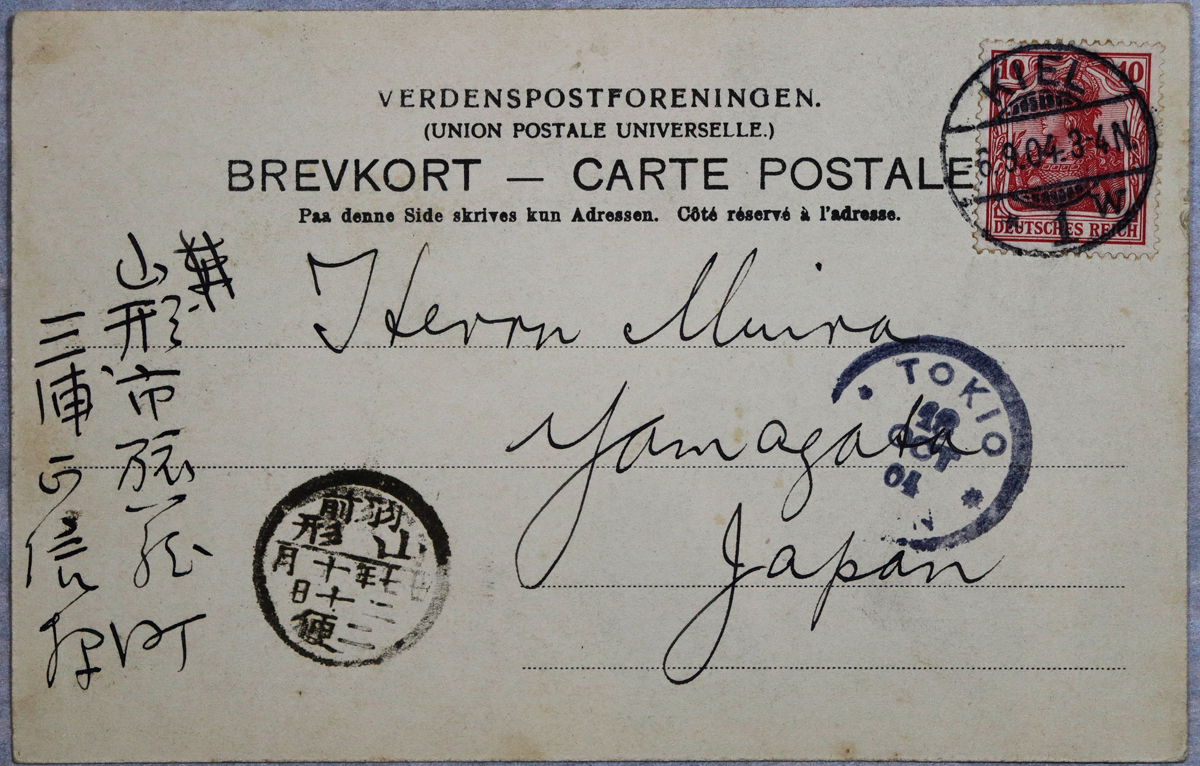 VERDENSPOSTFORENINGEN.
(UNION POSTALE UNIVERSELLE.)
BREVKORT — CARTE POSTALE
Paa denne Side skrives kun Adressen. Côté réservé à l'adresse.
10 10
DEUTSCHES REICH
KIEL
6.9.04.3-4N
* 1 W
Herrn Miura
Yamagata
Japan
TOKIO
OCT
04
山形市旅籠町
三浦正信様
羽前
山形
十月
十二日
便